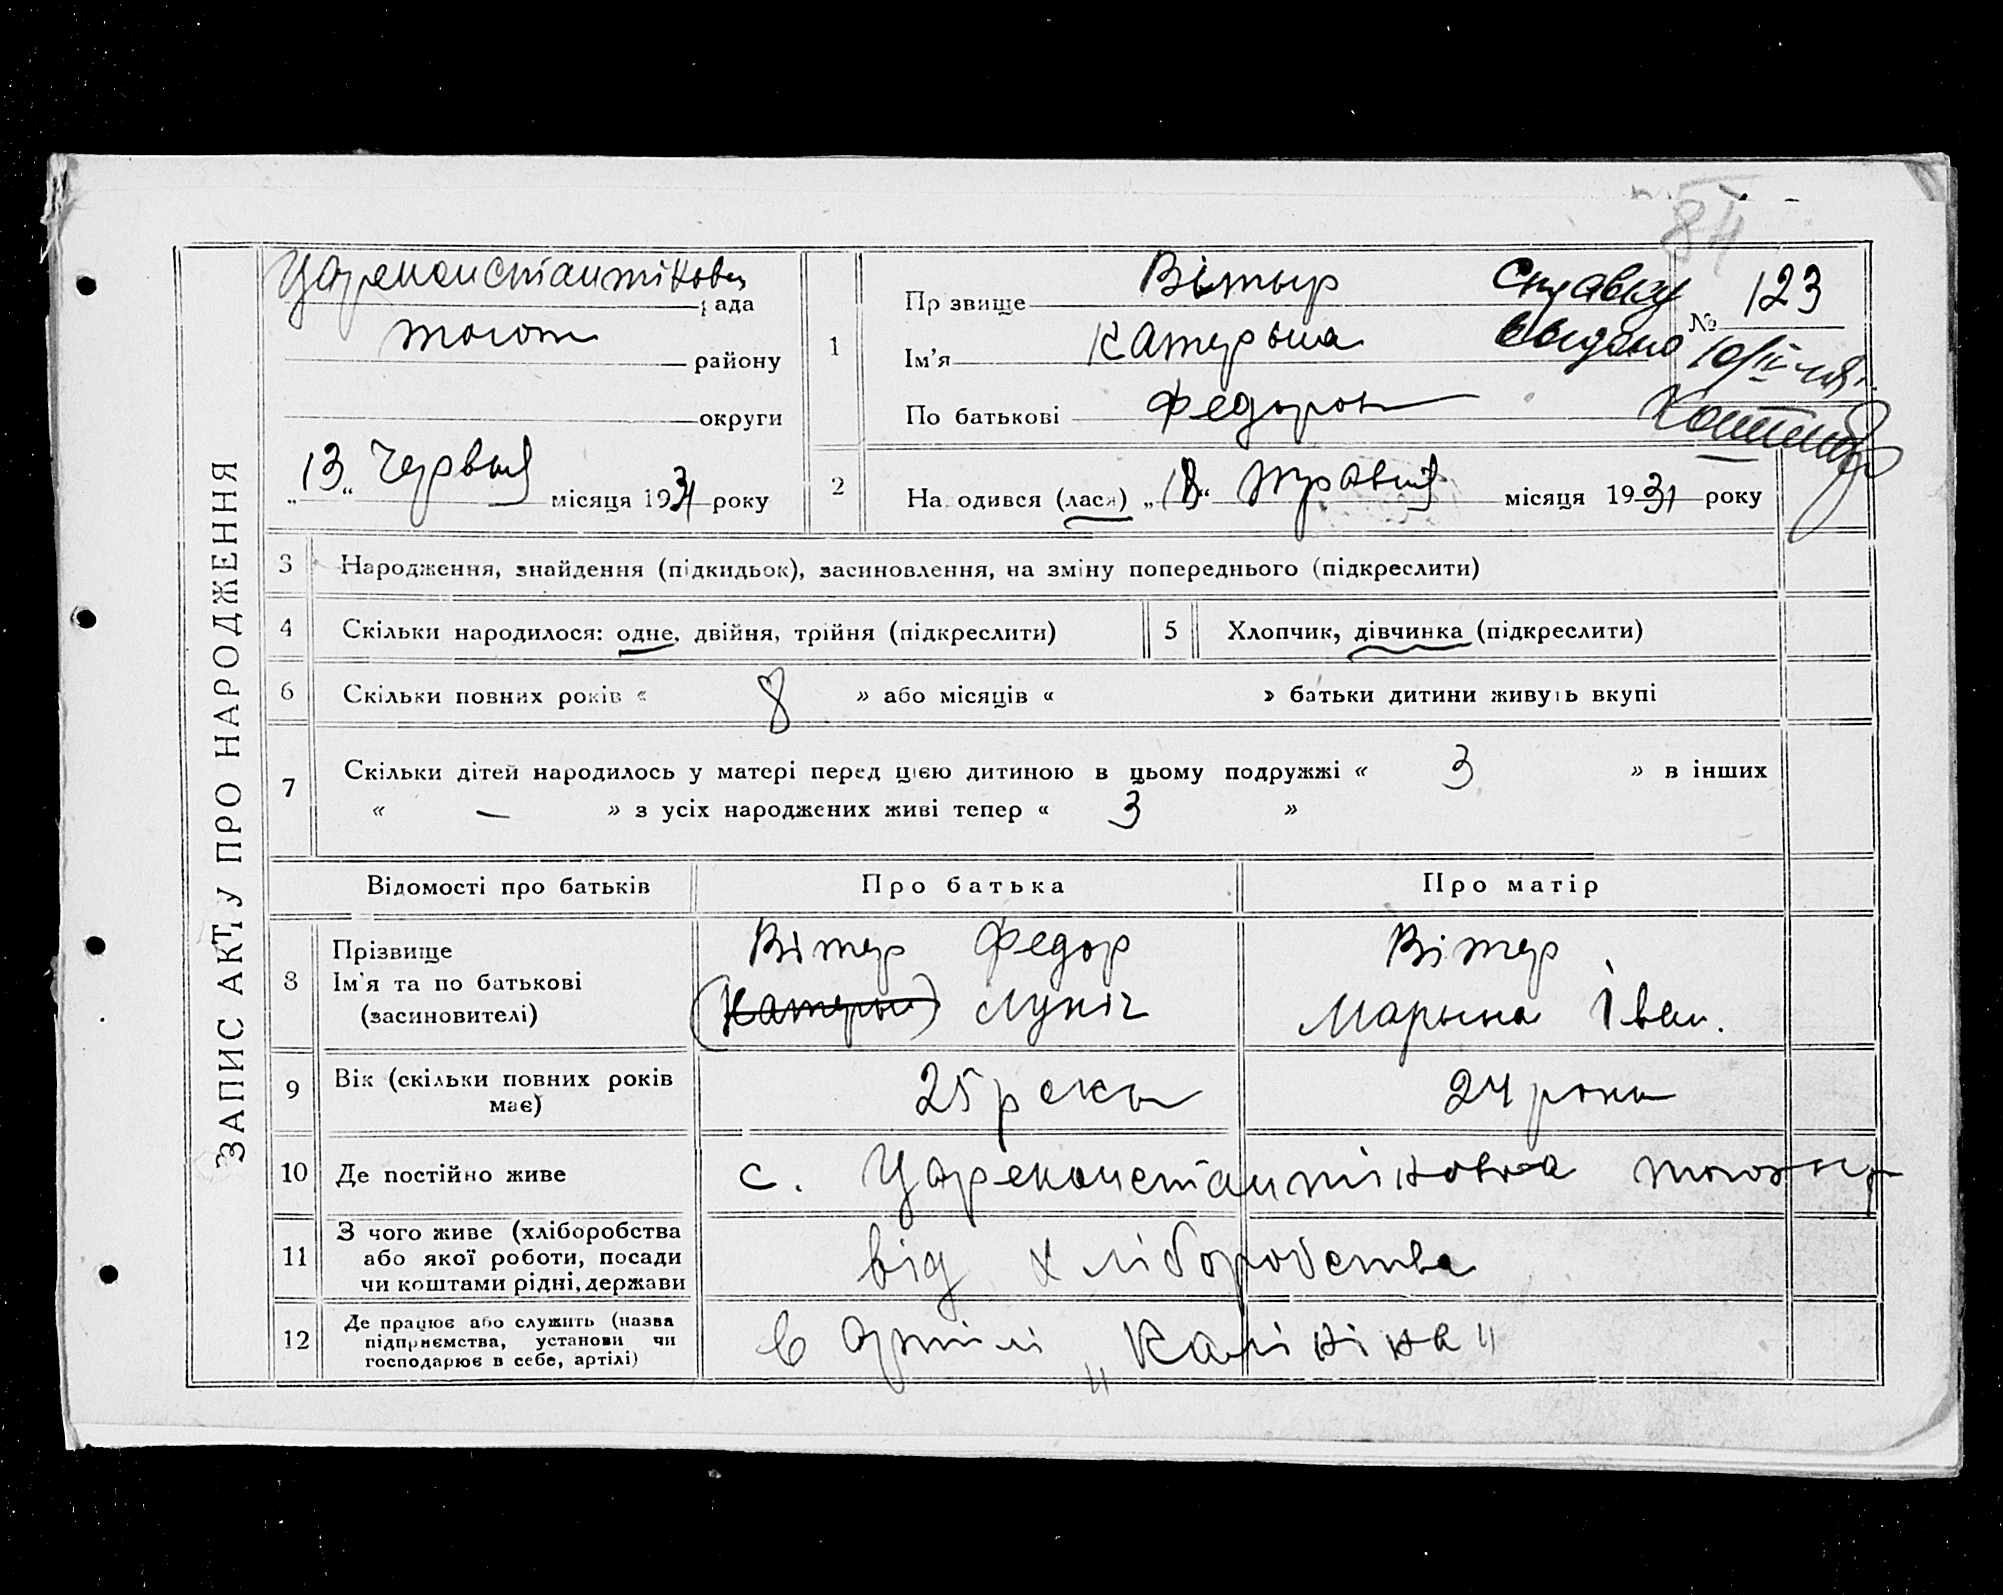 84
ЗАПИС АКТУ ПРО НАРОДЖЕННЯ
Цареконстантіновс рада
того ж району
округи
„13“ Червня місяця 1931 року
1
Прізвище Вітыр
Ім’я Катерына
По батькові Федоров
Справку
выдано
№ 123
10/IV-48 г.
2 Народився (лася) „18“ травня місяця 1931 року
3 Народження, знайдення (підкидьок), засиновлення, на зміну попереднього (підкреслити)
4 Скільки народилося: одне, двійня, трійня (підкреслити)
5 Хлопчик, дівчинка (підкреслити)
6 Скільки повних років « 8 » або місяців « » батьки дитини живуть вкупі
7 Скільки дітей народилось у матері перед цією дитиною в цьому подружжі « 3 » в інших
« — » з усіх народжених живі тепер « 3 »
Відомості про батьків Про батька Про матір
8 Прізвище
Ім’я та по батькові
(засновителі)
Вітер Федор
(Катеры) Лукіч
Вітер
Марына Іван.
9 Вік (скільки повних років
має)
25 рока
24 рока
10 Де постійно живе
с. Цареконстантіновка
11 З чого живе (хліборобства
або якої роботи, посади
чи коштами рідні, держави
від хліборобства
12 Де працює або служить (назва
підприємства, установи чи
господарює в себе, артілі)
в Артілі „Калініна“